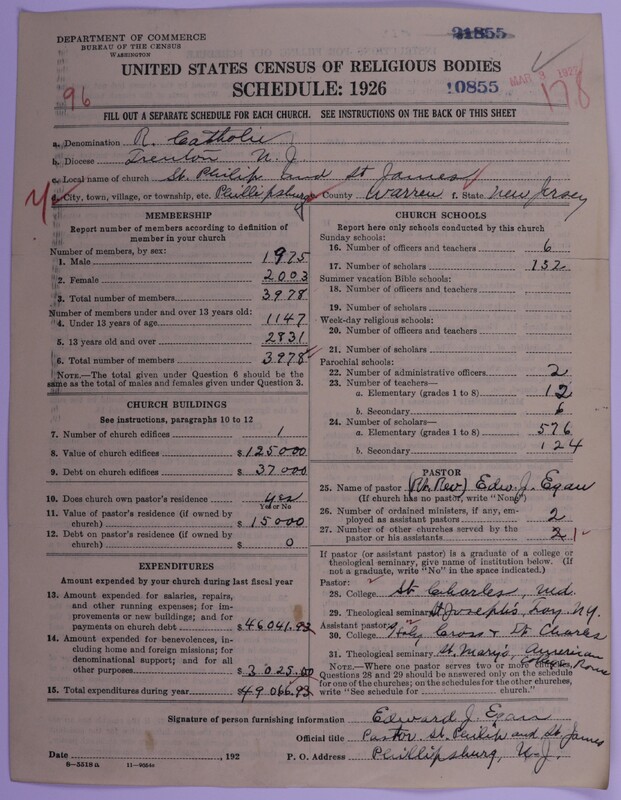 DEPARTMENT OF COMMERCE
BUREAU OF THE CENSUS
WASHINGTON
21855
UNITED STATES CENSUS OF RELIGIOUS BODIES
SCHEDULE: 1926
10855
MAR 3
178
96
FILL OUT A SEPARATE SCHEDULE FOR EACH CHURCH. SEE INSTRUCTIONS ON THE BACK OF THIS SHEET
a. Denomination R. Catholic
b. Diocese Trenton N. J.
c. Local name of church St. Philip and St James
d. City, town, village, or township, etc. Phillipsburg e. County Warren f. State New Jersey
MEMBERSHIP
Report number of members according to definition of member in your church
Number of members, by sex:
1. Male 1975
2. Female 2003
3. Total number of members 3978
Number of members under and over 13 years old:
4. Under 13 years of age 1147
5. 13 years old and over 2831
6. Total number of members 3978
NOTE.—The total given under Question 6 should be the same as the total of males and females given under Question 3.
CHURCH BUILDINGS
See instructions, paragraphs 10 to 12
7. Number of church edifices 1
8. Value of church edifices $ 125000
9. Debt on church edifices $ 37000
10. Does church own pastor's residence yes
Yes or No
11. Value of pastor's residence (if owned by church) $ 15000
12. Debt on pastor's residence (if owned by church) $ 0
EXPENDITURES
Amount expended by your church during last fiscal year
13. Amount expended for salaries, repairs, and other running expenses; for improvements or new buildings; and for payments on church debt $ 46041.93
14. Amount expended for benevolences, including home and foreign missions; for denominational support; and for all other purposes $ 3025.00
15. Total expenditures during year $ 49066.93
CHURCH SCHOOLS
Report here only schools conducted by this church
Sunday schools:
16. Number of officers and teachers 6
17. Number of scholars 132
Summer vacation Bible schools:
18. Number of officers and teachers
19. Number of scholars
Week-day religious schools:
20. Number of officers and teachers
21. Number of scholars
Parochial schools:
22. Number of administrative officers 2
23. Number of teachers—
a. Elementary (grades 1 to 8) 12
b. Secondary 6
24. Number of scholars—
a. Elementary (grades 1 to 8) 576
b. Secondary 124
PASTOR
25. Name of pastor (Rt. Rev) Edw. J. Egan
(If church has no pastor, write "None")
26. Number of ordained ministers, if any, employed as assistant pastors 2
27. Number of other churches served by the pastor or his assistants 2 1
If pastor (or assistant pastor) is a graduate of a college or theological seminary, give name of institution below. (If not a graduate, write "No" in the space indicated.)
Pastor:
28. College St. Charles, Md.
29. Theological seminary St Joseph's Troy. N.Y.
Assistant pastor:
30. College Holy Cross & St. Charles
31. Theological seminary St. Mary's, American College, Rome
NOTE.—Where one pastor serves two or more churches, Questions 28 and 29 should be answered only on the schedule for one of the churches; on the schedules for the other churches, write "See schedule for church."
Signature of person furnishing information Edward J. Egan
Official title Pastor St. Philip and St James
Date , 192 P. O. Address Phillipsburg, N.J.
8—5518a 11—9664